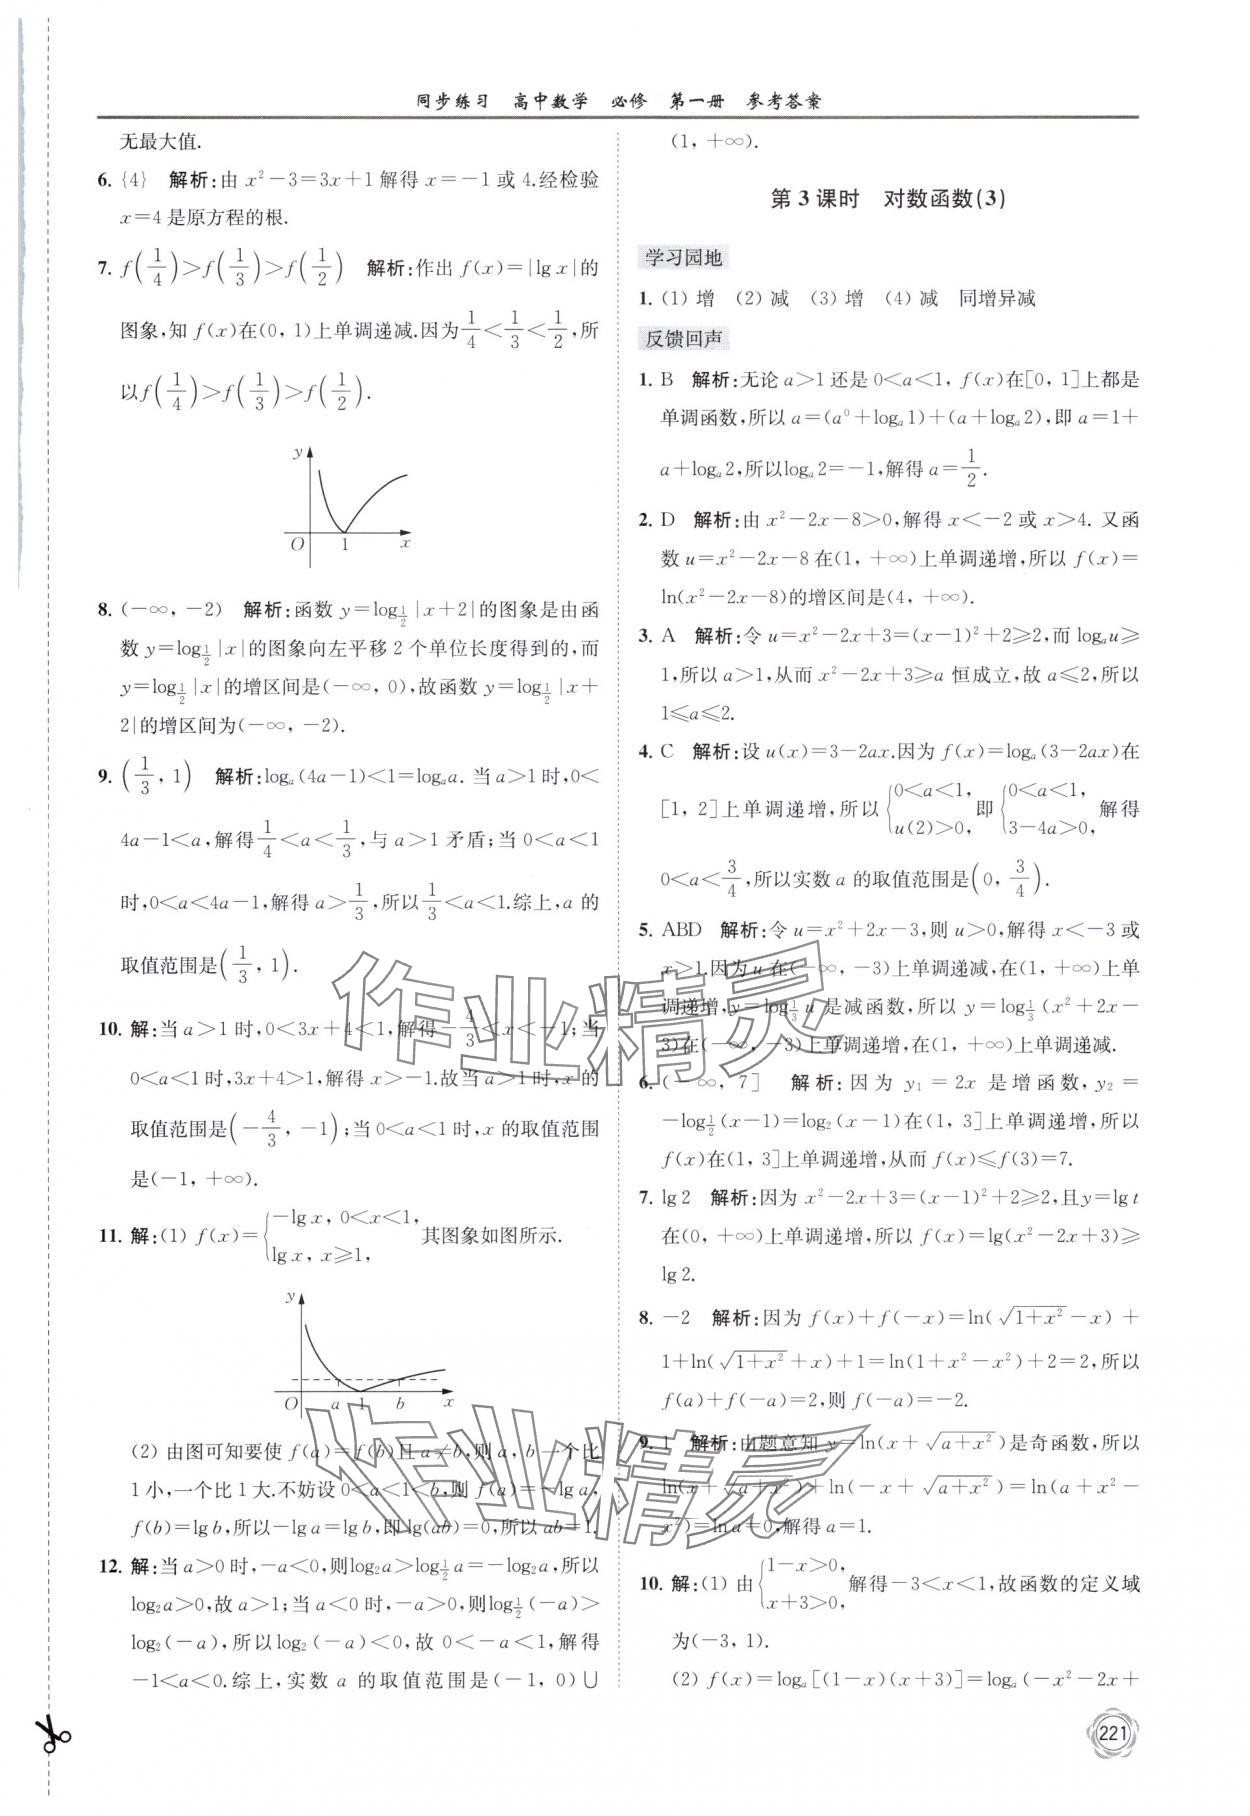 同步练习 高中数学 必修 第一册 参考答案
无最大值.
6. {4} 解析:由 x²-3=3x+1 解得 x=-1 或 4.经检验
x=4 是原方程的根.
7. f(1/4)>f(1/3)>f(1/2) 解析:作出 f(x)=|lg x|的
图象,知 f(x)在(0, 1)上单调递减.因为1/4<1/3<1/2,所
以f(1/4)>f(1/3)>f(1/2).
y
O 1 x
8. (-∞, -2) 解析:函数 y=log_{1/2}|x+2|的图象是由函
数 y=log_{1/2}|x|的图象向左平移 2 个单位长度得到的,而
y=log_{1/2}|x|的增区间是(-∞, 0),故函数 y=log_{1/2}|x+
2|的增区间为(-∞, -2).
9. (1/3, 1) 解析:logₐ(4a-1)<1=logₐa. 当 a>1 时,0<
4a-1<a,解得1/4<a<1/3,与 a>1 矛盾;当 0<a<1
时,0<a<4a-1,解得 a>1/3,所以1/3<a<1.综上,a 的
取值范围是(1/3, 1).
10. 解:当 a>1 时,0<3x+4<1,解得-4/3<x<-1;当
0<a<1 时,3x+4>1,解得 x>-1.故当 a>1 时,x 的
取值范围是(-4/3, -1);当 0<a<1 时,x 的取值范围
是(-1, +∞).
11. 解:(1) f(x)={-lg x, 0<x<1, lg x, x≥1, 其图象如图所示.
y
O a 1 b x
(2) 由图可知要使 f(a)=f(b)且 a≠b,则 a, b 一个比
1 小,一个比 1 大.不妨设 0<a<1<b,则 f(a)=-lg a,
f(b)=lg b,所以-lg a=lg b,即lg(ab)=0,所以 ab=1.
12. 解:当 a>0 时,-a<0,则log₂a>log_{1/2}a=-log₂a,所以
log₂a>0,故 a>1;当 a<0 时,-a>0,则log_{1/2}(-a)>
log₂(-a),所以log₂(-a)<0,故 0<-a<1,解得
-1<a<0.综上,实数 a 的取值范围是(-1, 0)∪
(1, +∞).
第 3 课时 对数函数(3)
学习园地
1. (1) 增 (2) 减 (3) 增 (4) 减 同增异减
反馈回声
1. B 解析:无论 a>1 还是 0<a<1, f(x)在[0, 1]上都是
单调函数,所以 a=(a⁰+logₐ1)+(a+logₐ2),即 a=1+
a+logₐ2,所以logₐ2=-1,解得 a=1/2.
2. D 解析:由 x²-2x-8>0,解得 x<-2 或 x>4. 又函
数 u=x²-2x-8 在(1, +∞)上单调递增,所以 f(x)=
ln(x²-2x-8)的增区间是(4, +∞).
3. A 解析:令 u=x²-2x+3=(x-1)²+2≥2,而 logₐu≥
1,所以 a>1,从而 x²-2x+3≥a 恒成立,故 a≤2,所以
1≤a≤2.
4. C 解析:设 u(x)=3-2ax.因为 f(x)=logₐ(3-2ax)在
[1, 2]上单调递增,所以{0<a<1, u(2)>0, 即{0<a<1, 3-4a>0, 解得
0<a<3/4,所以实数 a 的取值范围是(0, 3/4).
5. ABD 解析:令 u=x²+2x-3,则 u>0,解得 x<-3 或
x>1.因为u在(-∞, -3)上单调递减,在(1, +∞)上单
调递增,y=log_{1/3}u 是减函数,所以 y=log_{1/3}(x²+2x-
3)在(-∞, -3)上单调递增,在(1, +∞)上单调递减.
6. (-∞, 7] 解析:因为 y₁=2x 是增函数,y₂=
-log_{1/2}(x-1)=log₂(x-1)在(1, 3]上单调递增,所以
f(x)在(1, 3]上单调递增,从而 f(x)≤f(3)=7.
7. lg 2 解析:因为 x²-2x+3=(x-1)²+2≥2,且y=lg t
在(0, +∞)上单调递增,所以 f(x)=lg(x²-2x+3)≥
lg 2.
8. -2 解析:因为 f(x)+f(-x)=ln(√(1+x²)-x)+
1+ln(√(1+x²)+x)+1=ln(1+x²-x²)+2=2,所以
f(a)+f(-a)=2,则 f(-a)=-2.
9. 1 解析:由题意知 y=ln(x+√(a+x²))是奇函数,所以
ln(x+√(a+x²))+ln(-x+√(a+x²))=ln(a+x²-
x²)=ln a=0,解得 a=1.
10. 解:(1) 由{1-x>0, x+3>0, 解得-3<x<1,故函数的定义域
为(-3, 1).
(2) f(x)=logₐ[(1-x)(x+3)]=logₐ(-x²-2x+
221
作业精灵
作业精灵